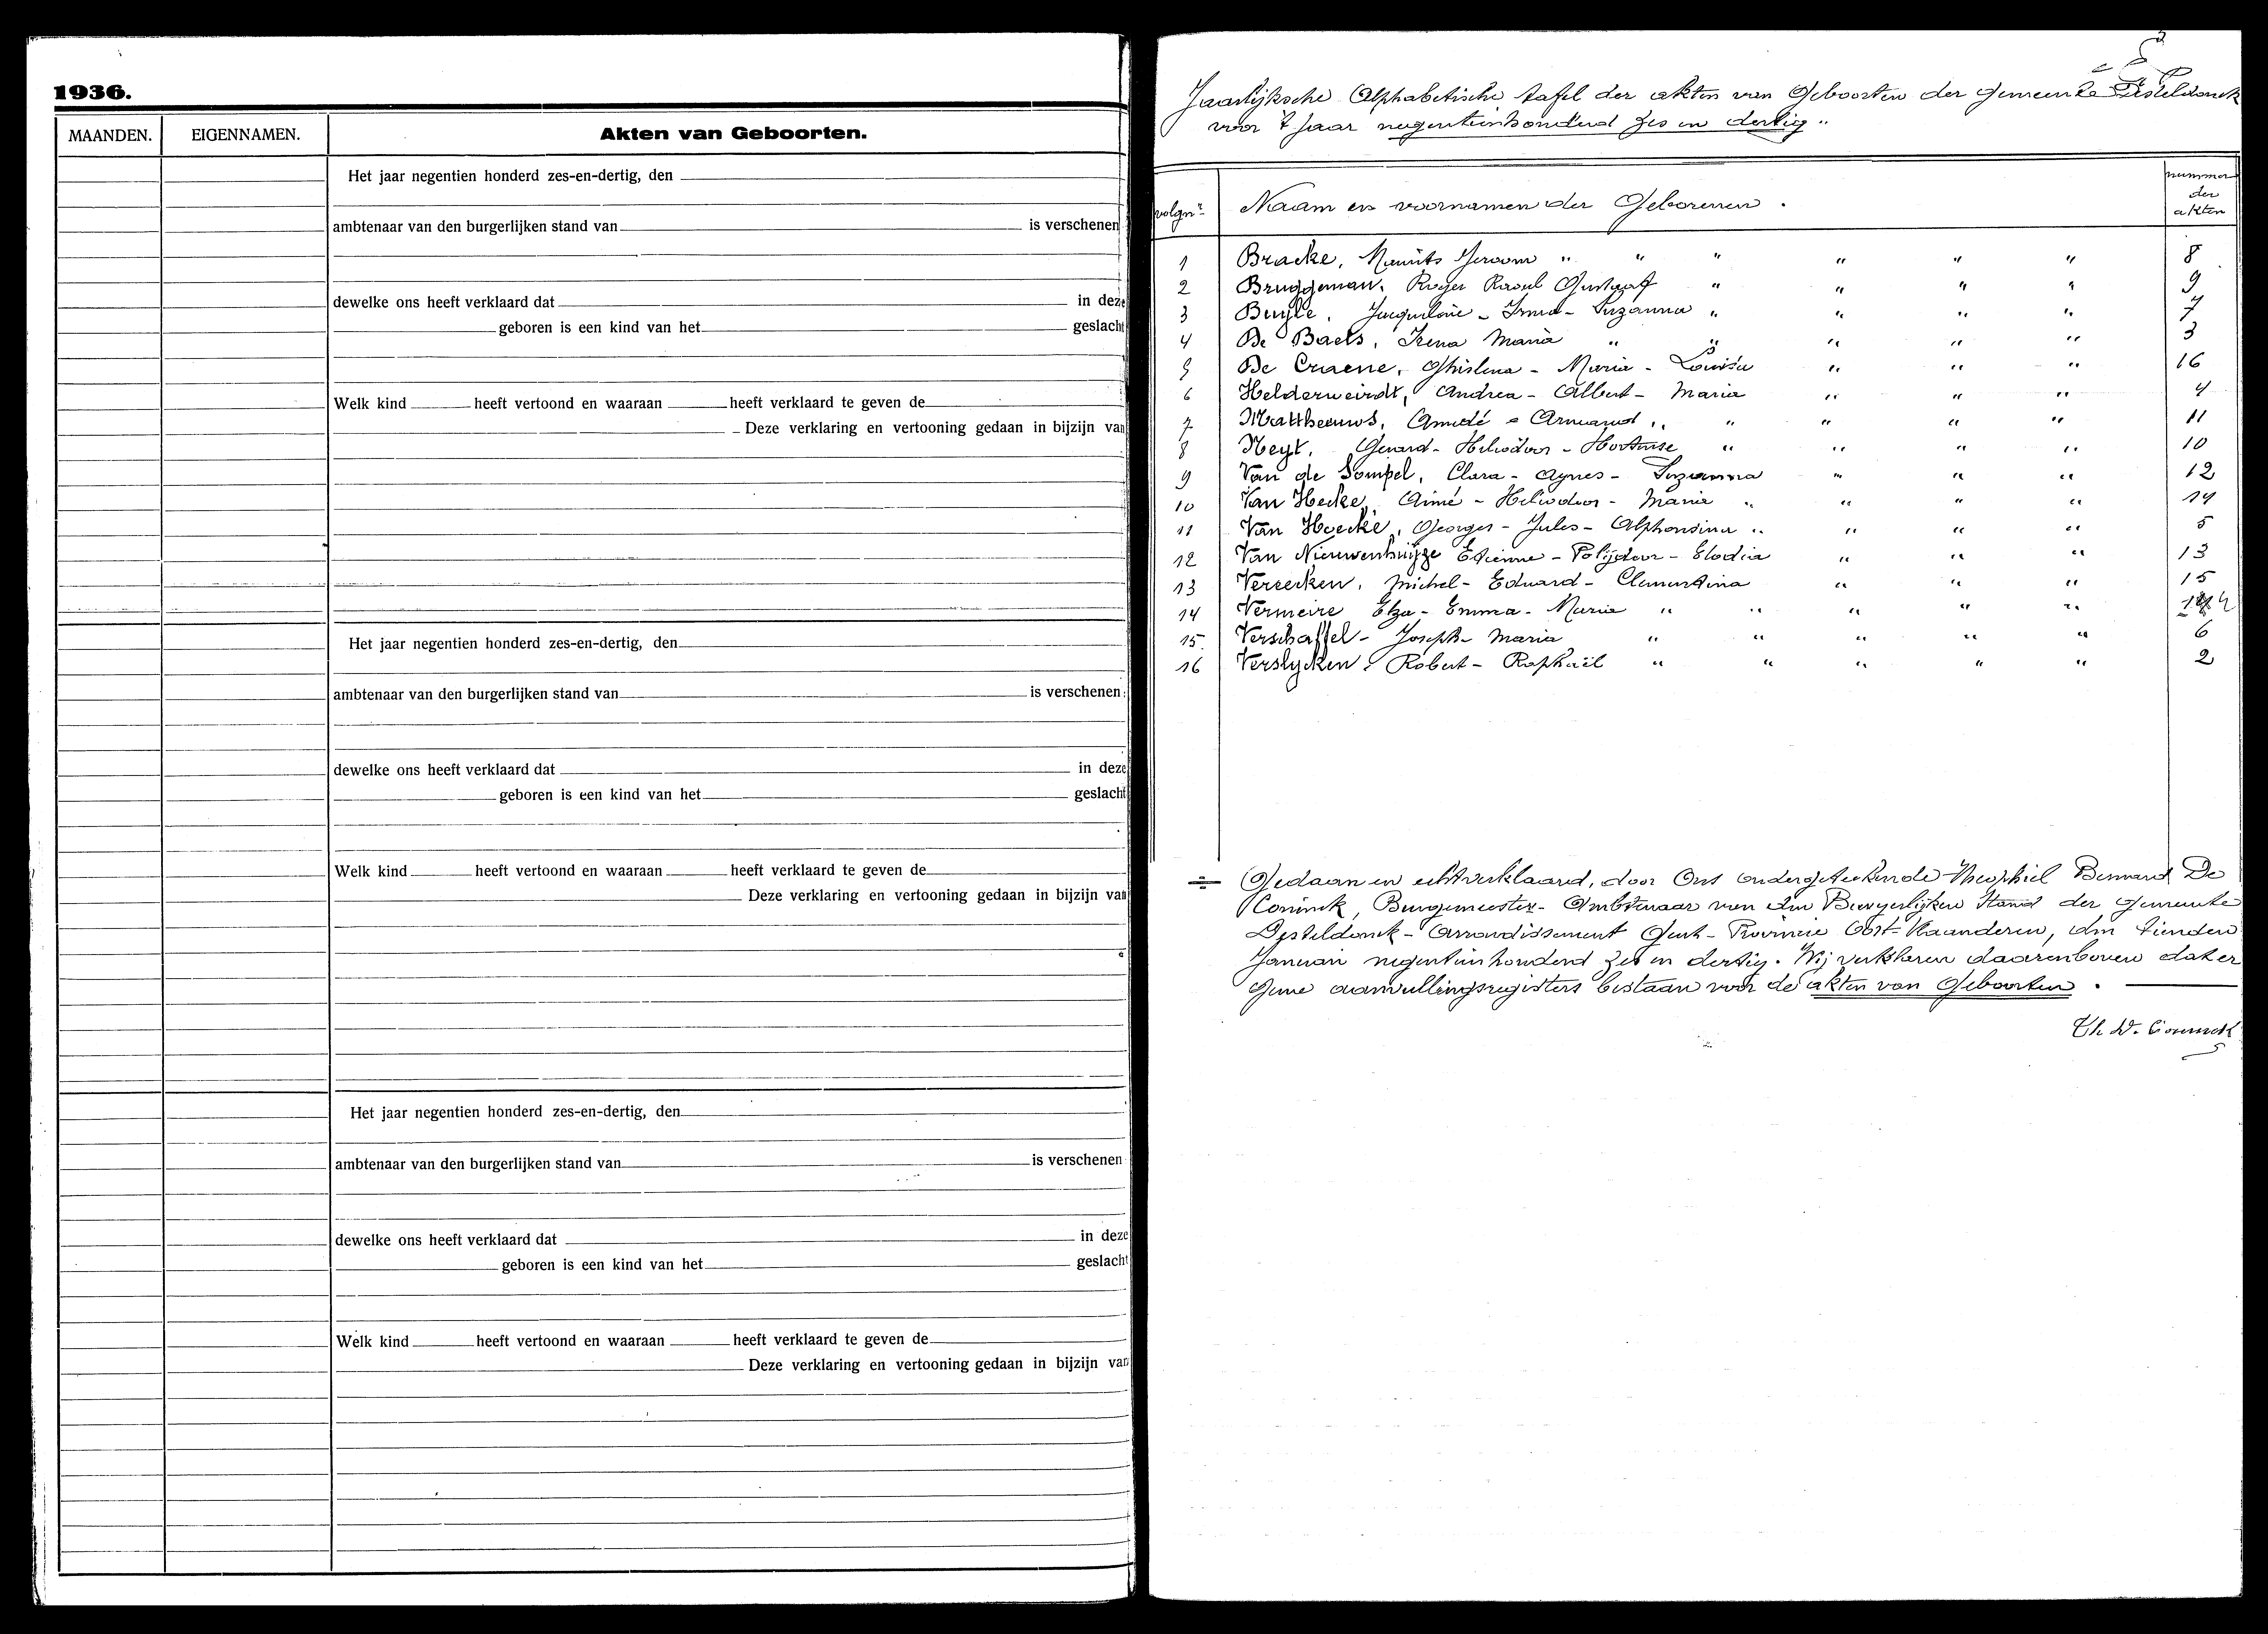 1936.
MAANDEN. EIGENNAMEN. Akten van Geboorten.
Het jaar negentien honderd zes-en-dertig, den
ambtenaar van den burgerlijken stand van is verschenen
dewelke ons heeft verklaard dat in deze
geboren is een kind van het geslacht
Welk kind heeft vertoond en waaraan heeft verklaard te geven de
Deze verklaring en vertooning gedaan in bijzijn van
Het jaar negentien honderd zes-en-dertig, den
ambtenaar van den burgerlijken stand van is verschenen:
dewelke ons heeft verklaard dat in deze
geboren is een kind van het geslacht
Welk kind heeft vertoond en waaraan heeft verklaard te geven de
Deze verklaring en vertooning gedaan in bijzijn van
Het jaar negentien honderd zes-en-dertig, den
ambtenaar van den burgerlijken stand van is verschenen
dewelke ons heeft verklaard dat in deze
geboren is een kind van het geslacht
Welk kind heeft vertoond en waaraan heeft verklaard te geven de
Deze verklaring en vertooning gedaan in bijzijn van
Jaarlijksche Alphabetische tafel der akten van Geboorten der gemeente Desteldonck
voor 't jaar negentienhonderd zes en dertig "
volgnr Naam en voornamen der Geborenen. nummer der akten
1 Bracke, Maurits Jeroom " " " " " " 8
2 Bruggeman, Roger Raoul Gustaaf " " " " 9
3 Buyle, Jacqueline - Irma - Suzanna " " " " 7
4 De Baets, Irena Maria " " " " " 3
5 De Craene, Ghislena - Maria - Louisa " " " 16
6 Helderweirdt, Andrea - Albert - Maria " " " 4
7 Mattheeuws, Amedé - Armand " " " " " 11
8 Neyt, Gerard - Heliodoor - Hortense " " " " 10
9 Van de Sompel, Clara - Agnes - Suzanna " " " 12
10 Van Hecke, Aimé - Heliodoor - Maria " " " " 14
11 Van Hoecke, Georges - Jules - Alphonsina " " " " 5
12 Van Nieuwenhuyze Etienne - Polijdoor - Elodia " " " 13
13 Vereecken, Michel - Eduard - Clementina " " " 15
14 Vermeire Elza - Emma - Maria " " " " "
15 Verschaffel - Joseph - Maria " " " " " 6
16 Verslycken, Robert - Raphaël " " " " " 2
Gedaan en echtverklaard, door Ons ondergeteekende Theophiel Bernard De
Coninck, Burgemeester - Ambtenaar van den Burgerlijken Stand der gemeente
Desteldonck - Arrondissement Gent - Provincie Oost-Vlaanderen, den tienden
Januari negentienhonderd zes en dertig. Wij verklaren daarenboven dat er
geene aanvullingsregisters bestaan voor de akten van Geboorten.
Th D. Coninck